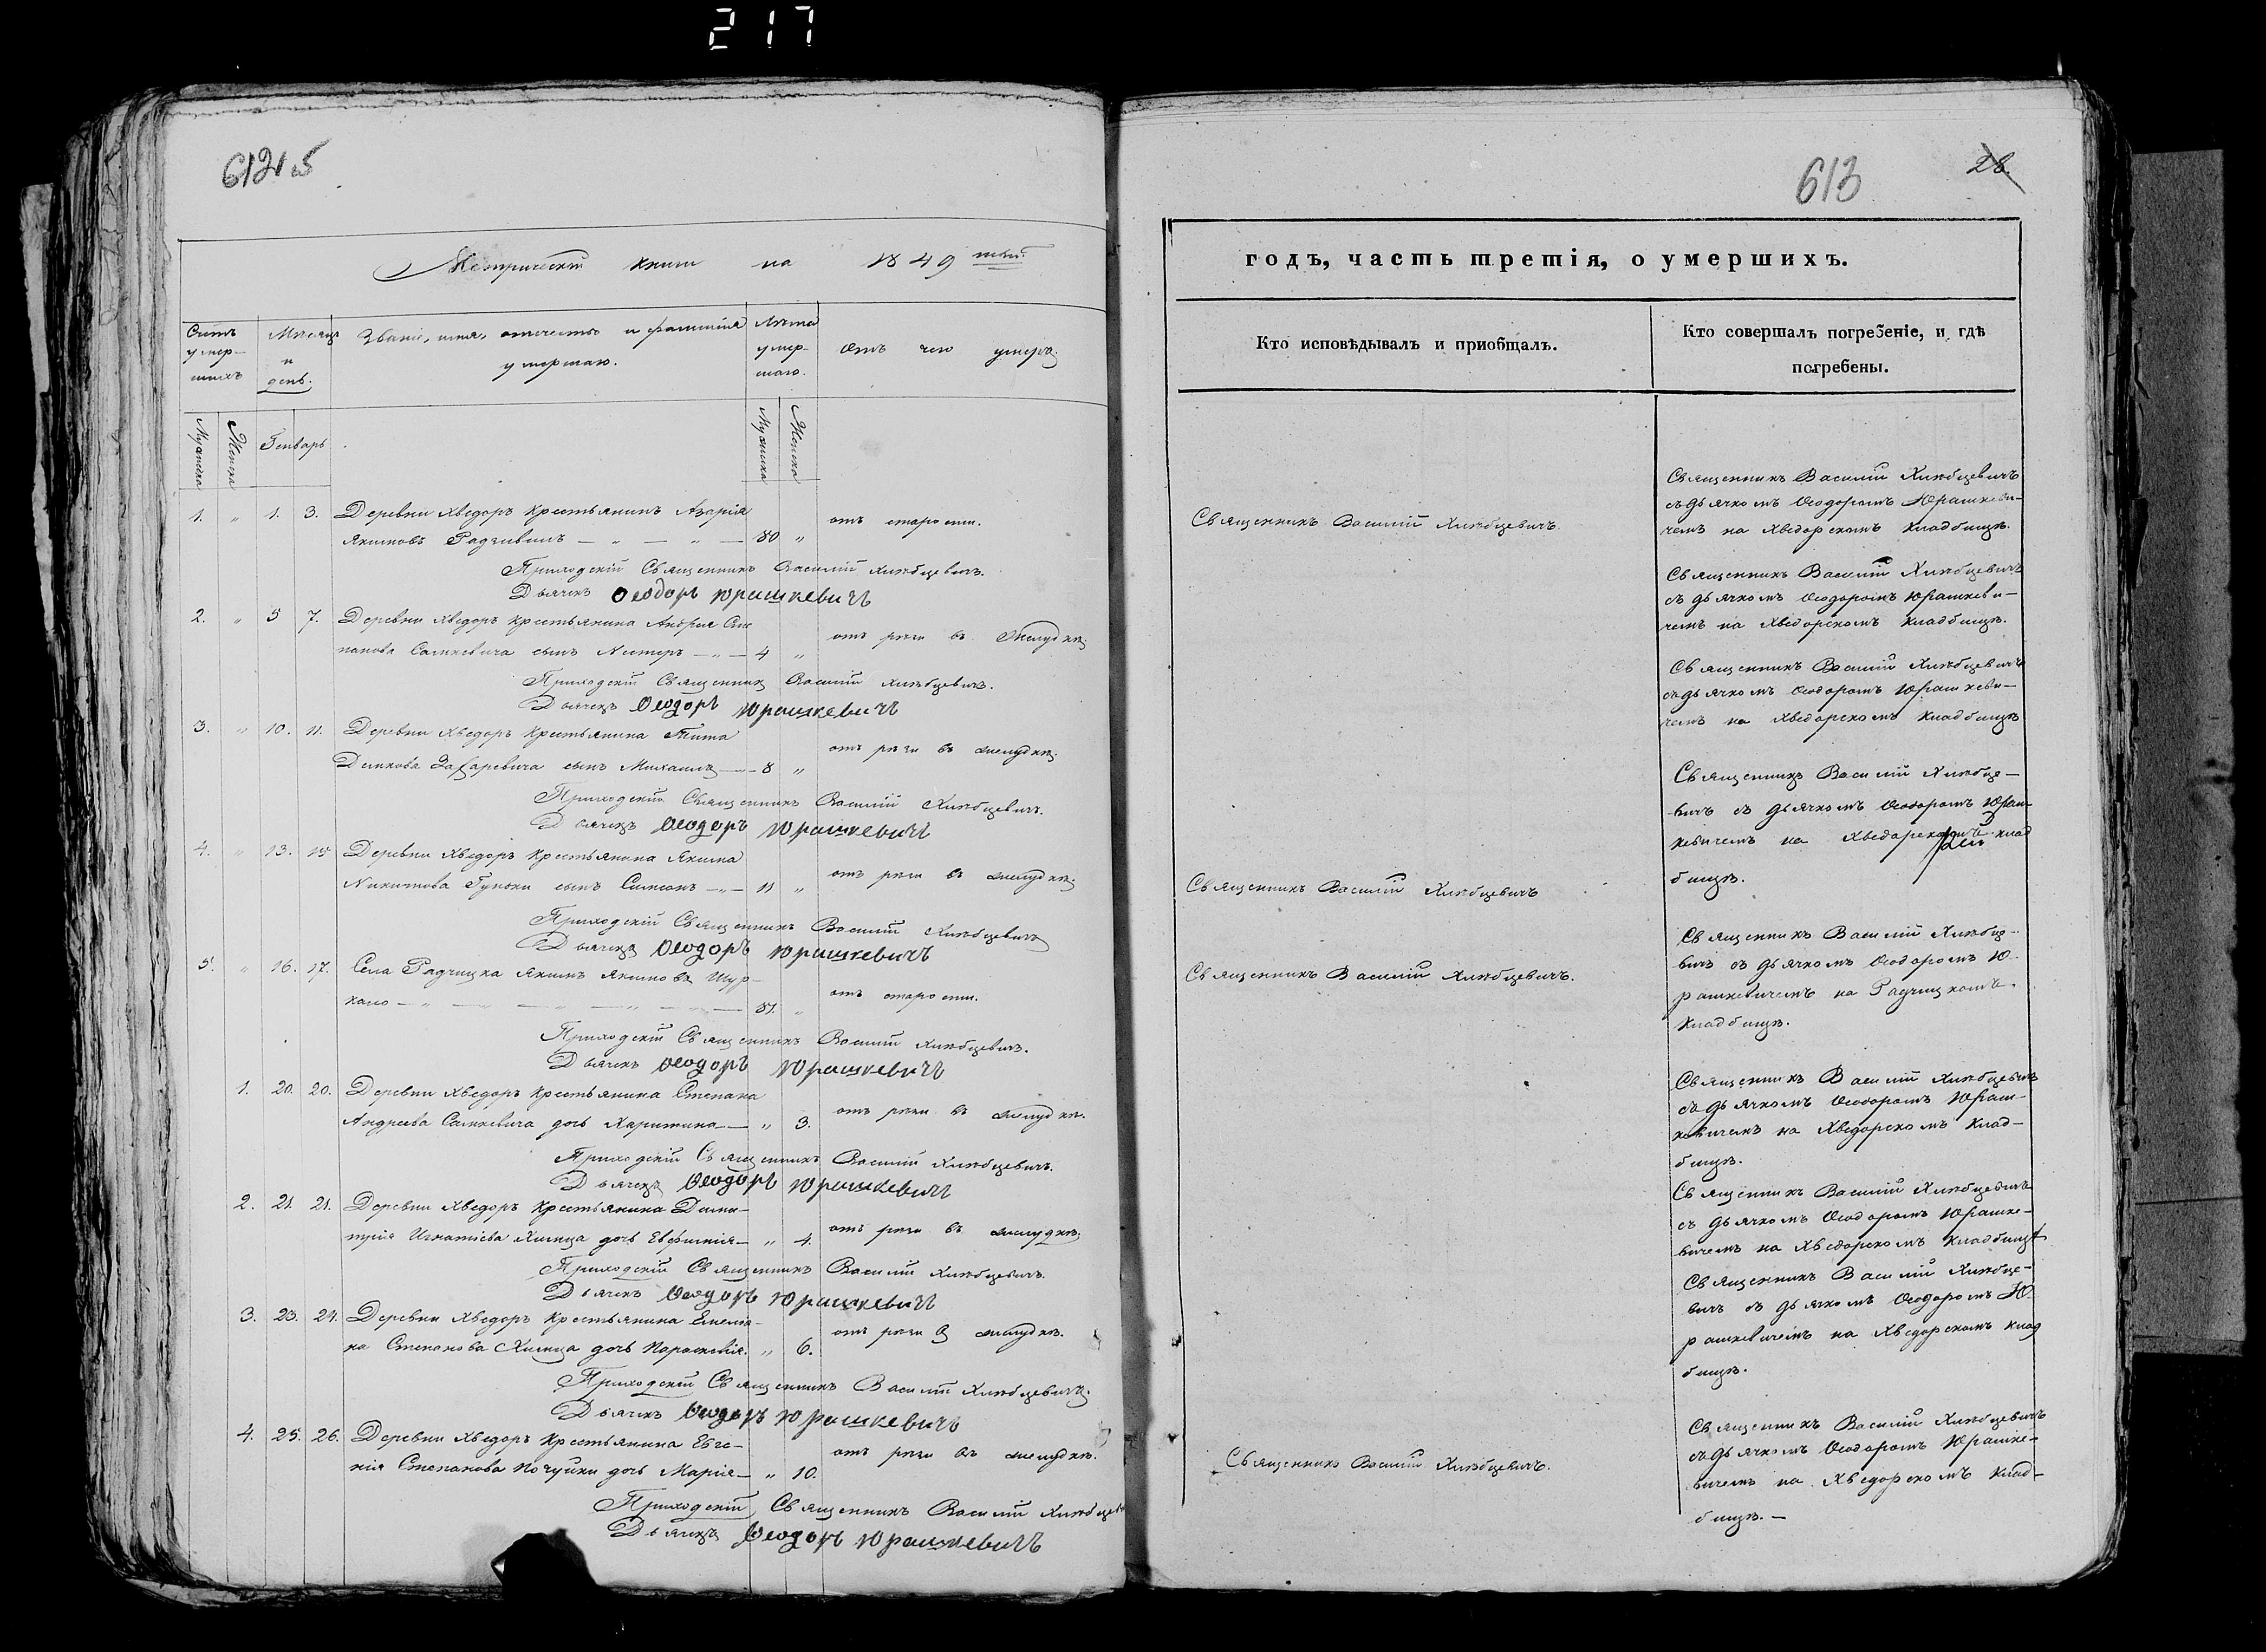 217
612 об
Метрической книги на 1849 тый.
Счетъ умер- шихъ
Мѣсяцъ и день.
Званіе, имя, отчество и фамилія умершаго.
Лѣта умер- шаго.
Отъ чего умеръ.
Мужеска
Женска
Генварь
Мужеска
Женска
1. " 1. 3. Деревни Хведоръ крестьянинъ Азарія
Якимовъ Радчивилъ — " — " — 80 " отъ старости.
Приходскій Священникъ Василій Хлѣбцевичъ.
Дьячекъ Ѳеодоръ Юрашкевичъ
2. " 5 7. Деревни Хведоръ крестьянина Андрея Сте
панова Сацкевича сынъ Несторъ — " — 4 " отъ рези въ желудкѣ.
Приходскій Священникъ Василій Хлѣбцевичъ.
Дьячекъ Ѳеодоръ Юрашкевичъ
3. " 10. 11. Деревни Хведоръ крестьянина Тита
Демкова Захаревича сынъ Михаилъ — 8 " отъ рези въ желудкѣ.
Приходскій Священникъ Василій Хлѣбцевичъ.
Дьячекъ Ѳеодоръ Юрашкевичъ
4. " 13. 15 Деревни Хведоръ крестьянина Якима
Никитова Гуноки сынъ Симеонъ — " — 11 " отъ рези въ желудкѣ.
Приходскій Священникъ Василій Хлѣбцевичъ
Дьячекъ Ѳеодоръ Юрашкевичъ
5. " 16. 17. Села Радчицка Якимъ Якимовъ Шур-
кало — " — " — " — 81. " отъ старости.
Приходскій Священникъ Василій Хлѣбцевичъ.
Дьячекъ Ѳеодоръ Юрашкевичъ
1. 20. 20. Деревни Хведоръ крестьянина Степана
Андреева Сацкевича дочь Харитина — " 3. отъ рези въ желудкѣ.
Приходскій Священникъ Василій Хлѣбцевичъ.
Дьячекъ Ѳеодоръ Юрашкевичъ
2. 21. 21. Деревни Хведоръ крестьянина Дими-
трія Игнатіева Химица дочь Евфимія — " 4. отъ рези въ желудкѣ.
Приходскій Священникъ Василій Хлѣбцевичъ.
Дьячекъ Ѳеодоръ Юрашкевичъ
3. 23. 24. Деревни Хведоръ крестьянина Емелія-
на Степанова Химица дочь Параскевія. " 6. отъ рези въ желудкѣ.
Приходскій Священникъ Василій Хлѣбцевичъ.
Дьячекъ Ѳеодоръ Юрашкевичъ
4. 25. 26. Деревни Хведоръ крестьянина Евге-
нія Степанова Почуйки дочь Марія — " 10. отъ рези въ желудкѣ.
Приходскій Священникъ Василій Хлѣбцев
Дьячекъ Ѳеодоръ Юрашкевичъ
613
28.
годъ, часть третія, о умершихъ.
Кто исповѣдывалъ и пріобщалъ.
Кто совершалъ погребеніе, и гдѣ
погребены.
Священникъ Василій Хлѣбцевичъ.
Священникъ Василій Хлѣбцевичъ
съ дьячкомъ Ѳеодоромъ Юрашкеви-
чемъ на Хведорскомъ кладбищѣ.
Священникъ Василій Хлѣбцевичъ
съ дьячкомъ Ѳеодоромъ Юрашкеви-
чемъ на Хведорскомъ кладбищѣ.
Священникъ Василій Хлѣбцевичъ
съ дьячкомъ Ѳеодоромъ Юрашкеви-
чемъ на Хведорскомъ кладбищѣ
Священникъ Василій Хлѣбцевичъ
Священникъ Василій Хлѣбце-
вичъ съ дьячкомъ Ѳеодоромъ Юраш-
кевичемъ на Хведорскомъ клад
бищѣ.
Священникъ Василій Хлѣбцевичъ.
Священникъ Василій Хлѣбце-
вичъ съ дьячкомъ Ѳеодоромъ Ю-
рашкевичемъ на Радчицкомъ
кладбищѣ.
Священникъ Василій Хлѣбцевичъ
съ дьячкомъ Ѳеодоромъ Юраш-
кевичемъ на Хведорскомъ клад-
бищѣ.
Священникъ Василій Хлѣбцевичъ
съ дьячкомъ Ѳеодоромъ Юрашке-
вичемъ на Хведорскомъ кладбищѣ
Священникъ Василій Хлѣбце-
вичъ съ дьячкомъ Ѳеодоромъ Ю-
рашкевичемъ на Хведорскомъ клад
бищѣ.
Священникъ Василій Хлѣбцевичъ.
Священникъ Василій Хлѣбцевичъ
съ дьячкомъ Ѳеодоромъ Юрашке-
вичемъ на Хведорскомъ клад-
бищѣ. —